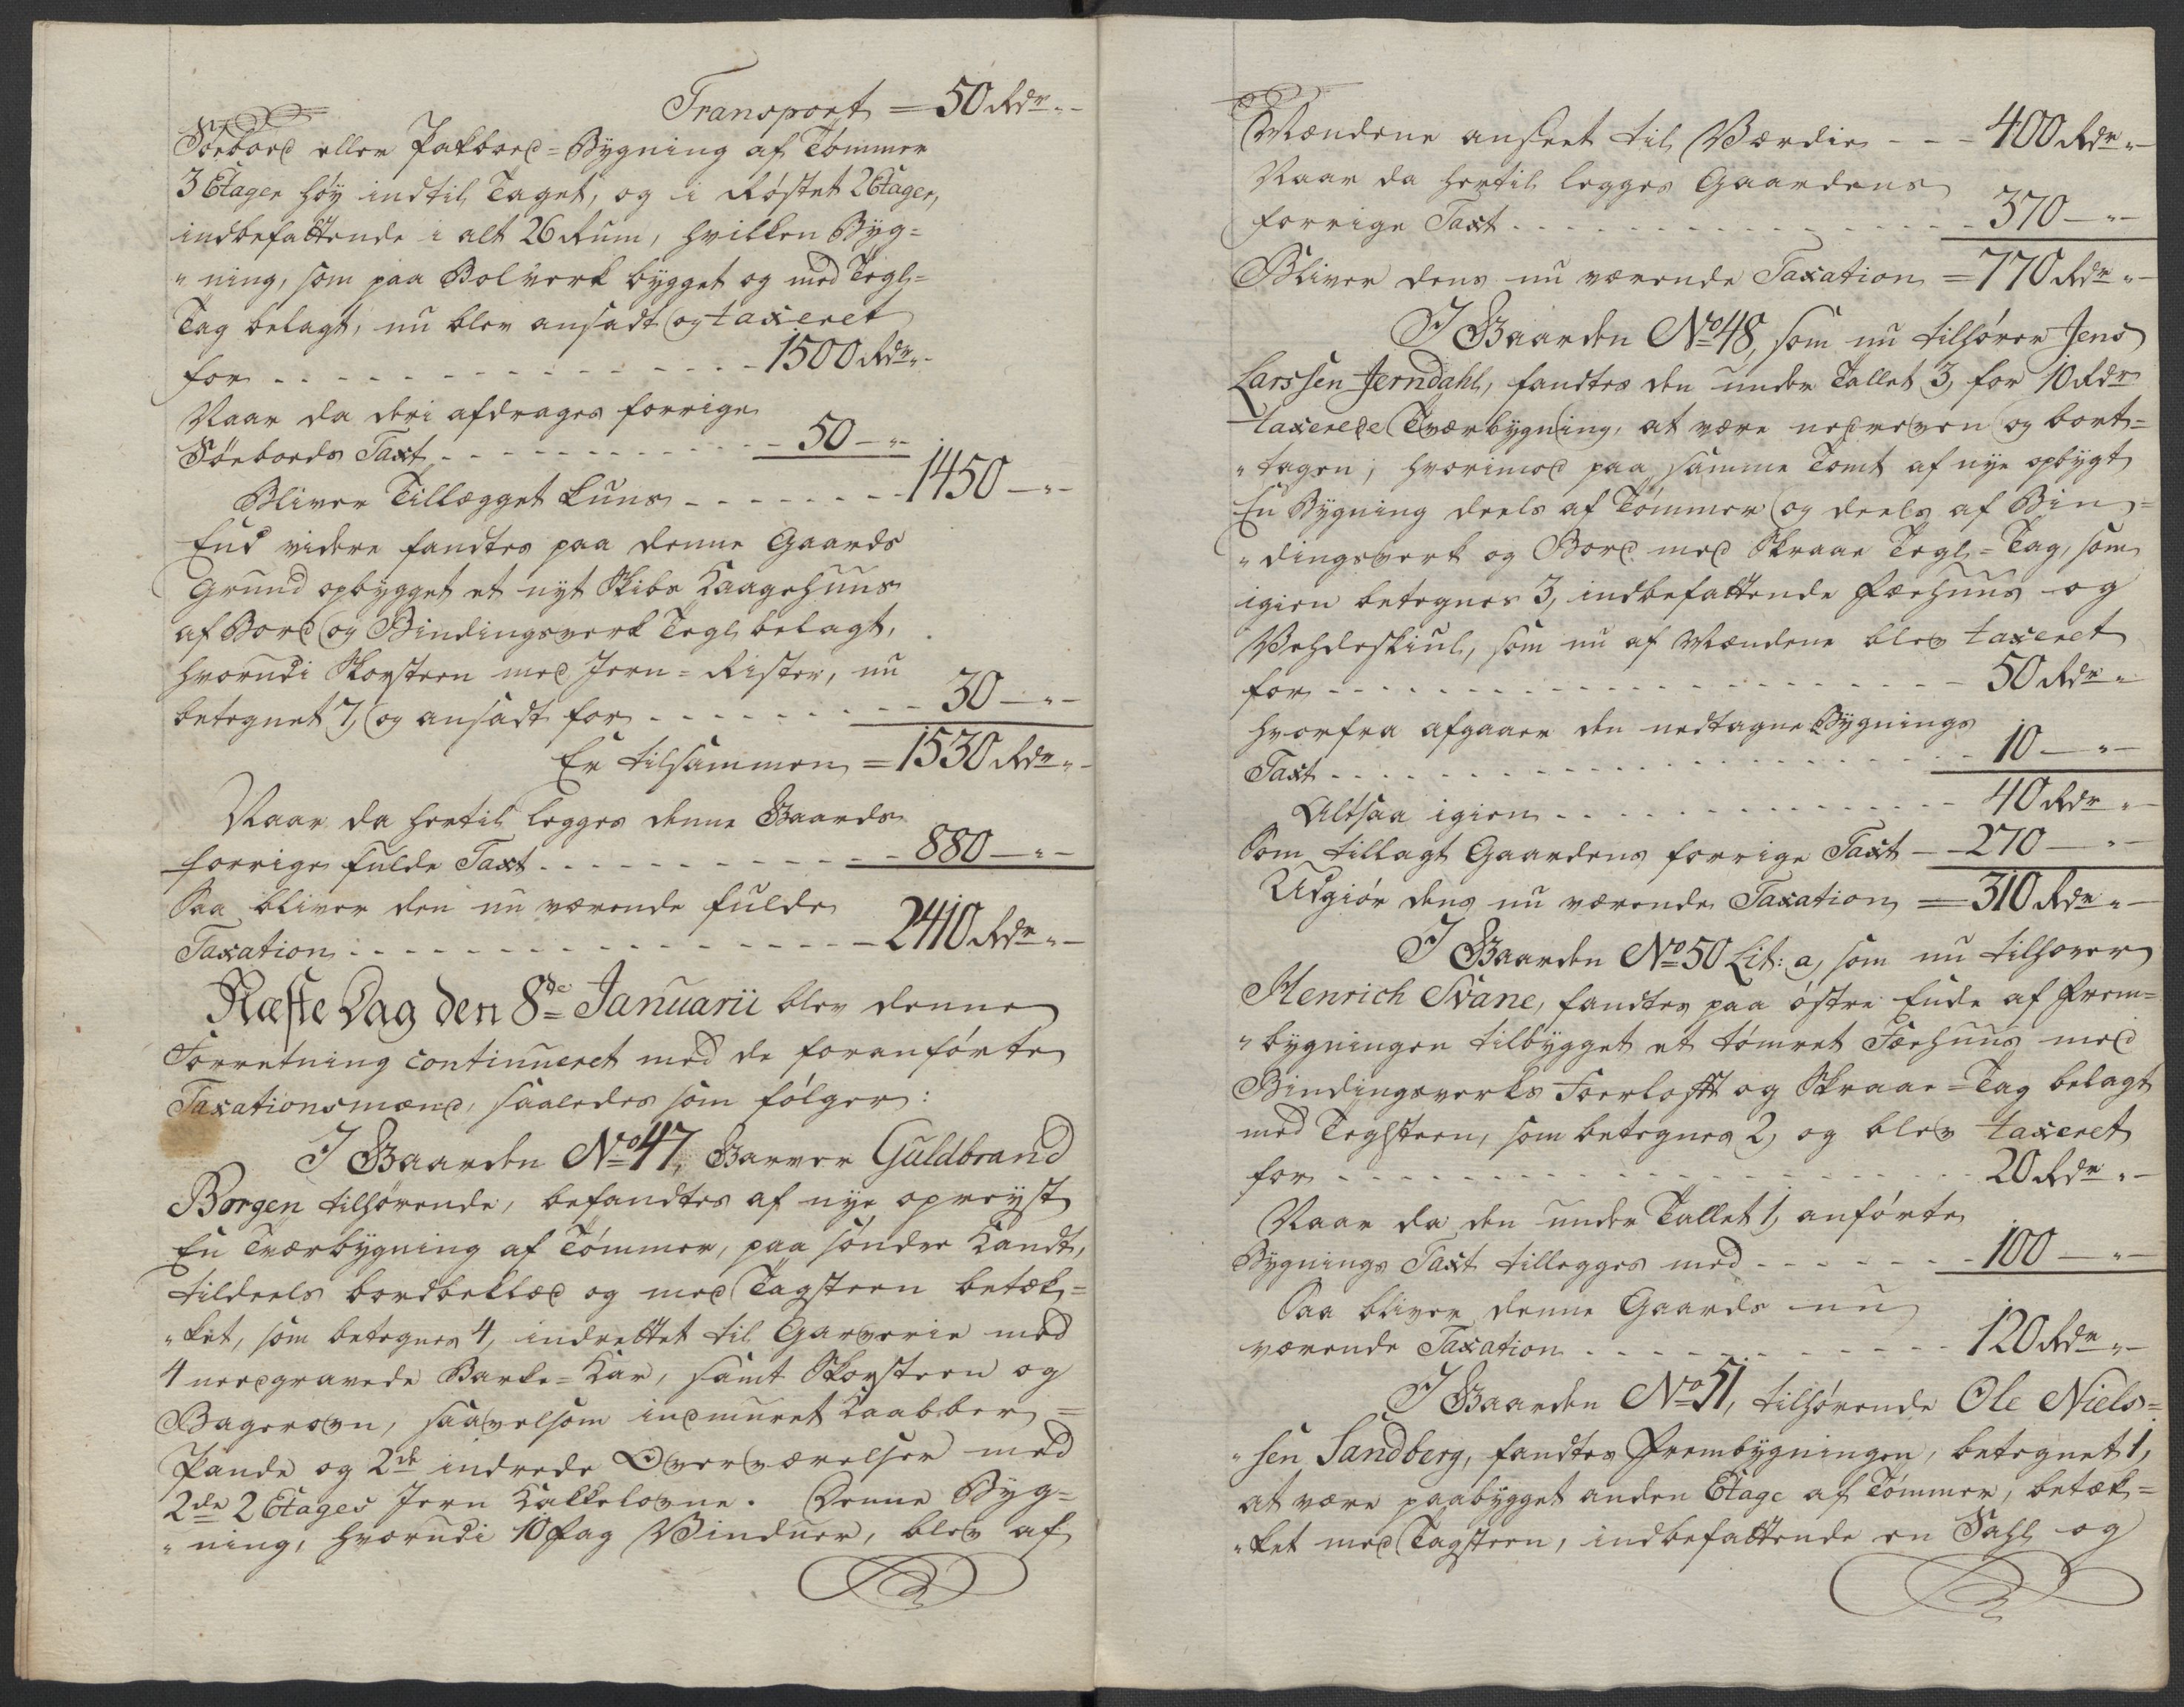 Transport = 50 Rdr " -
Söeboed eller Pakboed = Bygning af Tømmer
3 Etager høy indtil Taget, og i Røstet 2 Etager,
indbefattende i alt 26 Rum, hvilken Byg=
" ning, som paa Bolverk bygget og med Tegl=
Tag belagt, nu blev ansadt og taxeret
for - - - - 1500 Rdr " -
Naar da deri afdrages forrige
Söeboeds Taxt - - - - 50 - " -
Bliver Tillegget kuns - - - - 1450 - " -
End videre fandtes paa denne Gaards
Grund opbygget et nyt Skibs Kaagehuus
af Bord og Bindingsverk Tegl belagt,
hvorudi Skorsteen med Jern = Rister, nu
betegnet 7, og ansadt for - - - - 30 - " -
Er tilsammen = 1530 Rdr " -
Naar da hertil legges denne Gaards
forrige fulde Taxt - - - - 880 - " -
Saa bliver den nu værende fulde
Taxation - - - - 2410 Rdr " -
Næste Dag den 8de Januarii blev denne
Forretning continueret med de foranførte
Taxationsmænd, saaledes som følger:
I Gaarden No 47, Garver Guldbrand
Borgen tilhørende, befandtes af nye opreyst
En Tværbygning af Tømmer, paa søndre Kandt,
tildeels bordbeklæd og med Tagsteen betæk=
" ket, som betegnes 4, indrettet til Garverie med
4 nedgravede Barke = Kar, samt Skorsteen og
Bagerovn, saavelsom indmuret Kaabber =
Pande og 2de indrede Overværelser med
2de 2 Etages Jern Kakkelovne. Denne Byg=
" ning, hvorudi 10 Fag Vinduer, blev af
Mændene anseet til Værdie - - - 400 Rdr " -
Naar da hertil legges Gaardens
forrige Taxt - - - - 370 - " -
Bliver dens nu værende Taxation = 770 Rdr " -
I Gaarden No 48, som nu tilhører Jens
Larssen Jerndahl, fandtes den under Tallet 3, for 10 Rdr
taxerede Tværbygning, at være nedreven og bort=
" tagen; hvorimod paa samme Tomt af nye opbygt
En Bygning deels af Tømmer og deels af Bin=
" dingsverk og Bord med Skraae Tegl = Tag, som
igien betegnes 3, indbefattende Fæehuus og
Vehdeskiul, som nu af Mændene blev taxeret
for - - - - 50 Rdr "
hvorfra afgaaer den nedtagne Bygnings
Taxt - - - - 10 - " -
Altsaa igien - - - - 40 Rdr " -
Som tillagt Gaardens forrige Taxt - - 270 - " -
Udgiør dens nu værende Taxation = 310 Rdr " -
I Gaarden No 50 Lit: a, som nu tilhører
Henrich Svane, fandtes paa østre Ende af Frem=
" bygningen tilbygget et tømret Fæehuus med
Bindingsverks Foerlofft og Skraae = Tag belagt
med Teglsteen, som betegnes 2, og blev taxeret
for - - - - 20 Rdr " -
Naar da den under Tallet 1, anførte
Bygnings Taxt tillegges med - - - - 100 - " -
Saa bliver denne Gaards nu
værende Taxation - - - - 120 Rdr " -
I Gaarden No 51, tilhørende Ole Niels=
" sen Sandberg, fandtes Frembygningen, betegnet 1,
at være paabygget anden Etage af Tømmer, betæk=
" ket med Tagsteen, indbefattende en Sahl og